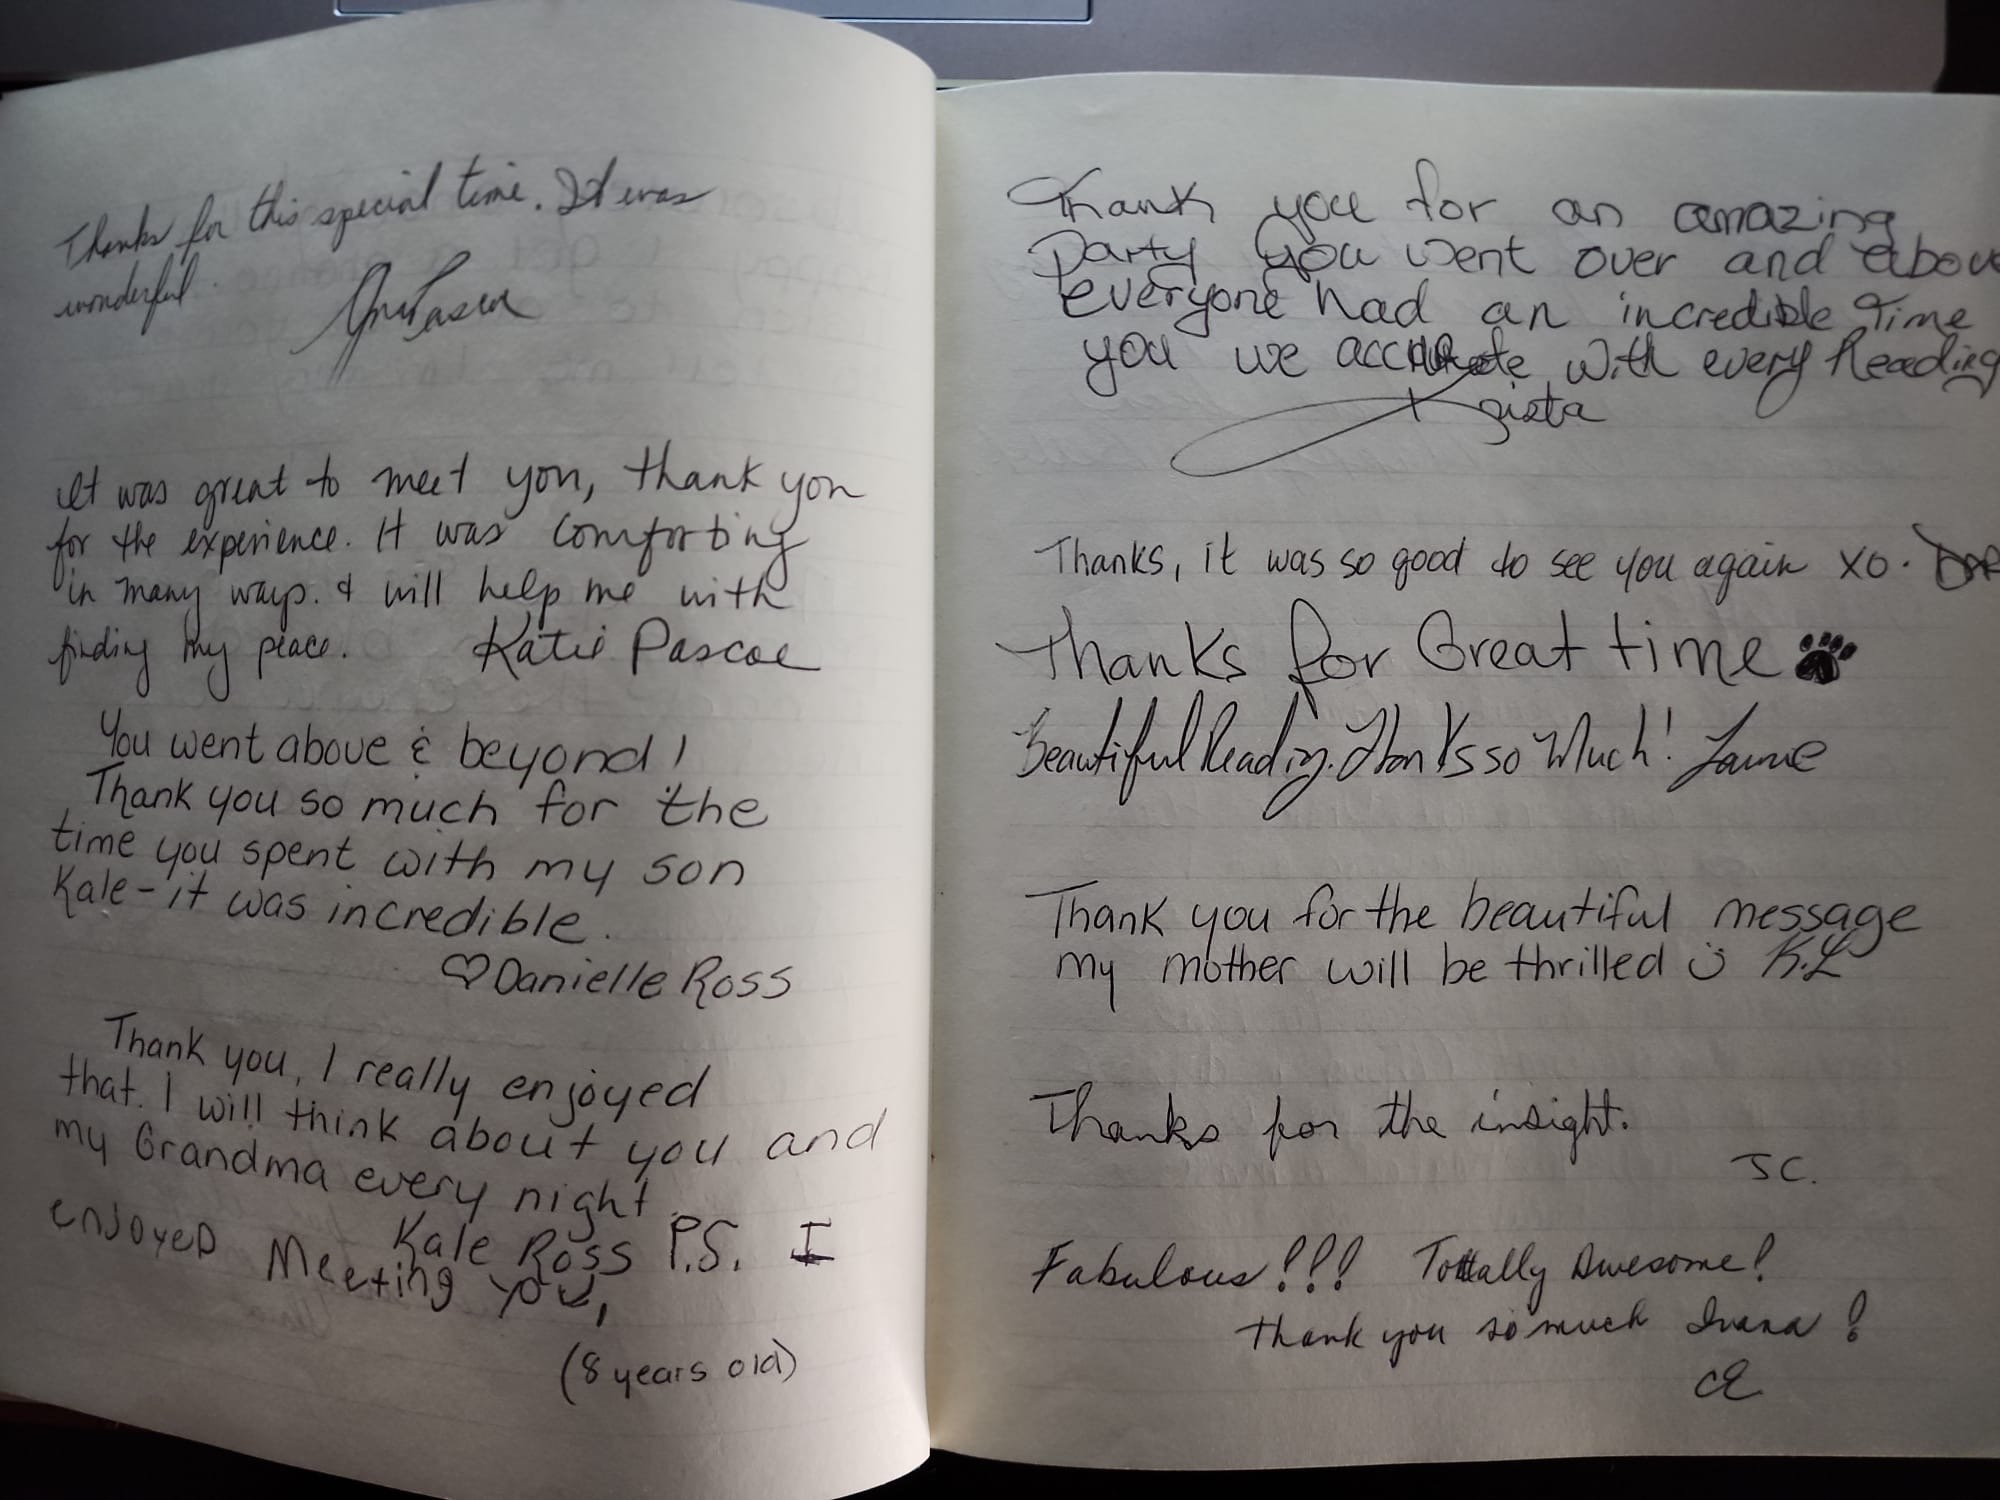 Thanks for this special time. It was
wonderful.
It was great to meet you, thank you
for the experience. It was comforting
in many ways. & will help me with
finding my peace. Katie Pascoe
You went above & beyond!
Thank you so much for the
time you spent with my son
Kale - it was incredible.
♡ Danielle Ross
Thank you, I really enjoyed
that. I will think about you and
my Grandma every night.
Kale Ross P.S. I
enjoyed Meeting you,
(8 years old)
Thank you for an amazing
Party you went over and above
everyone had an incredible time
you we accurate with every Reading
Thanks, it was so good to see you again XO.
Thanks for Great time
Beautiful Reading. Thanks so Much!
Thank you for the beautiful message
my mother will be thrilled K.L
Thanks for the insight.
JC.
Fabulous!!! Totally Awesome!
Thank you so much Ivana!
CE